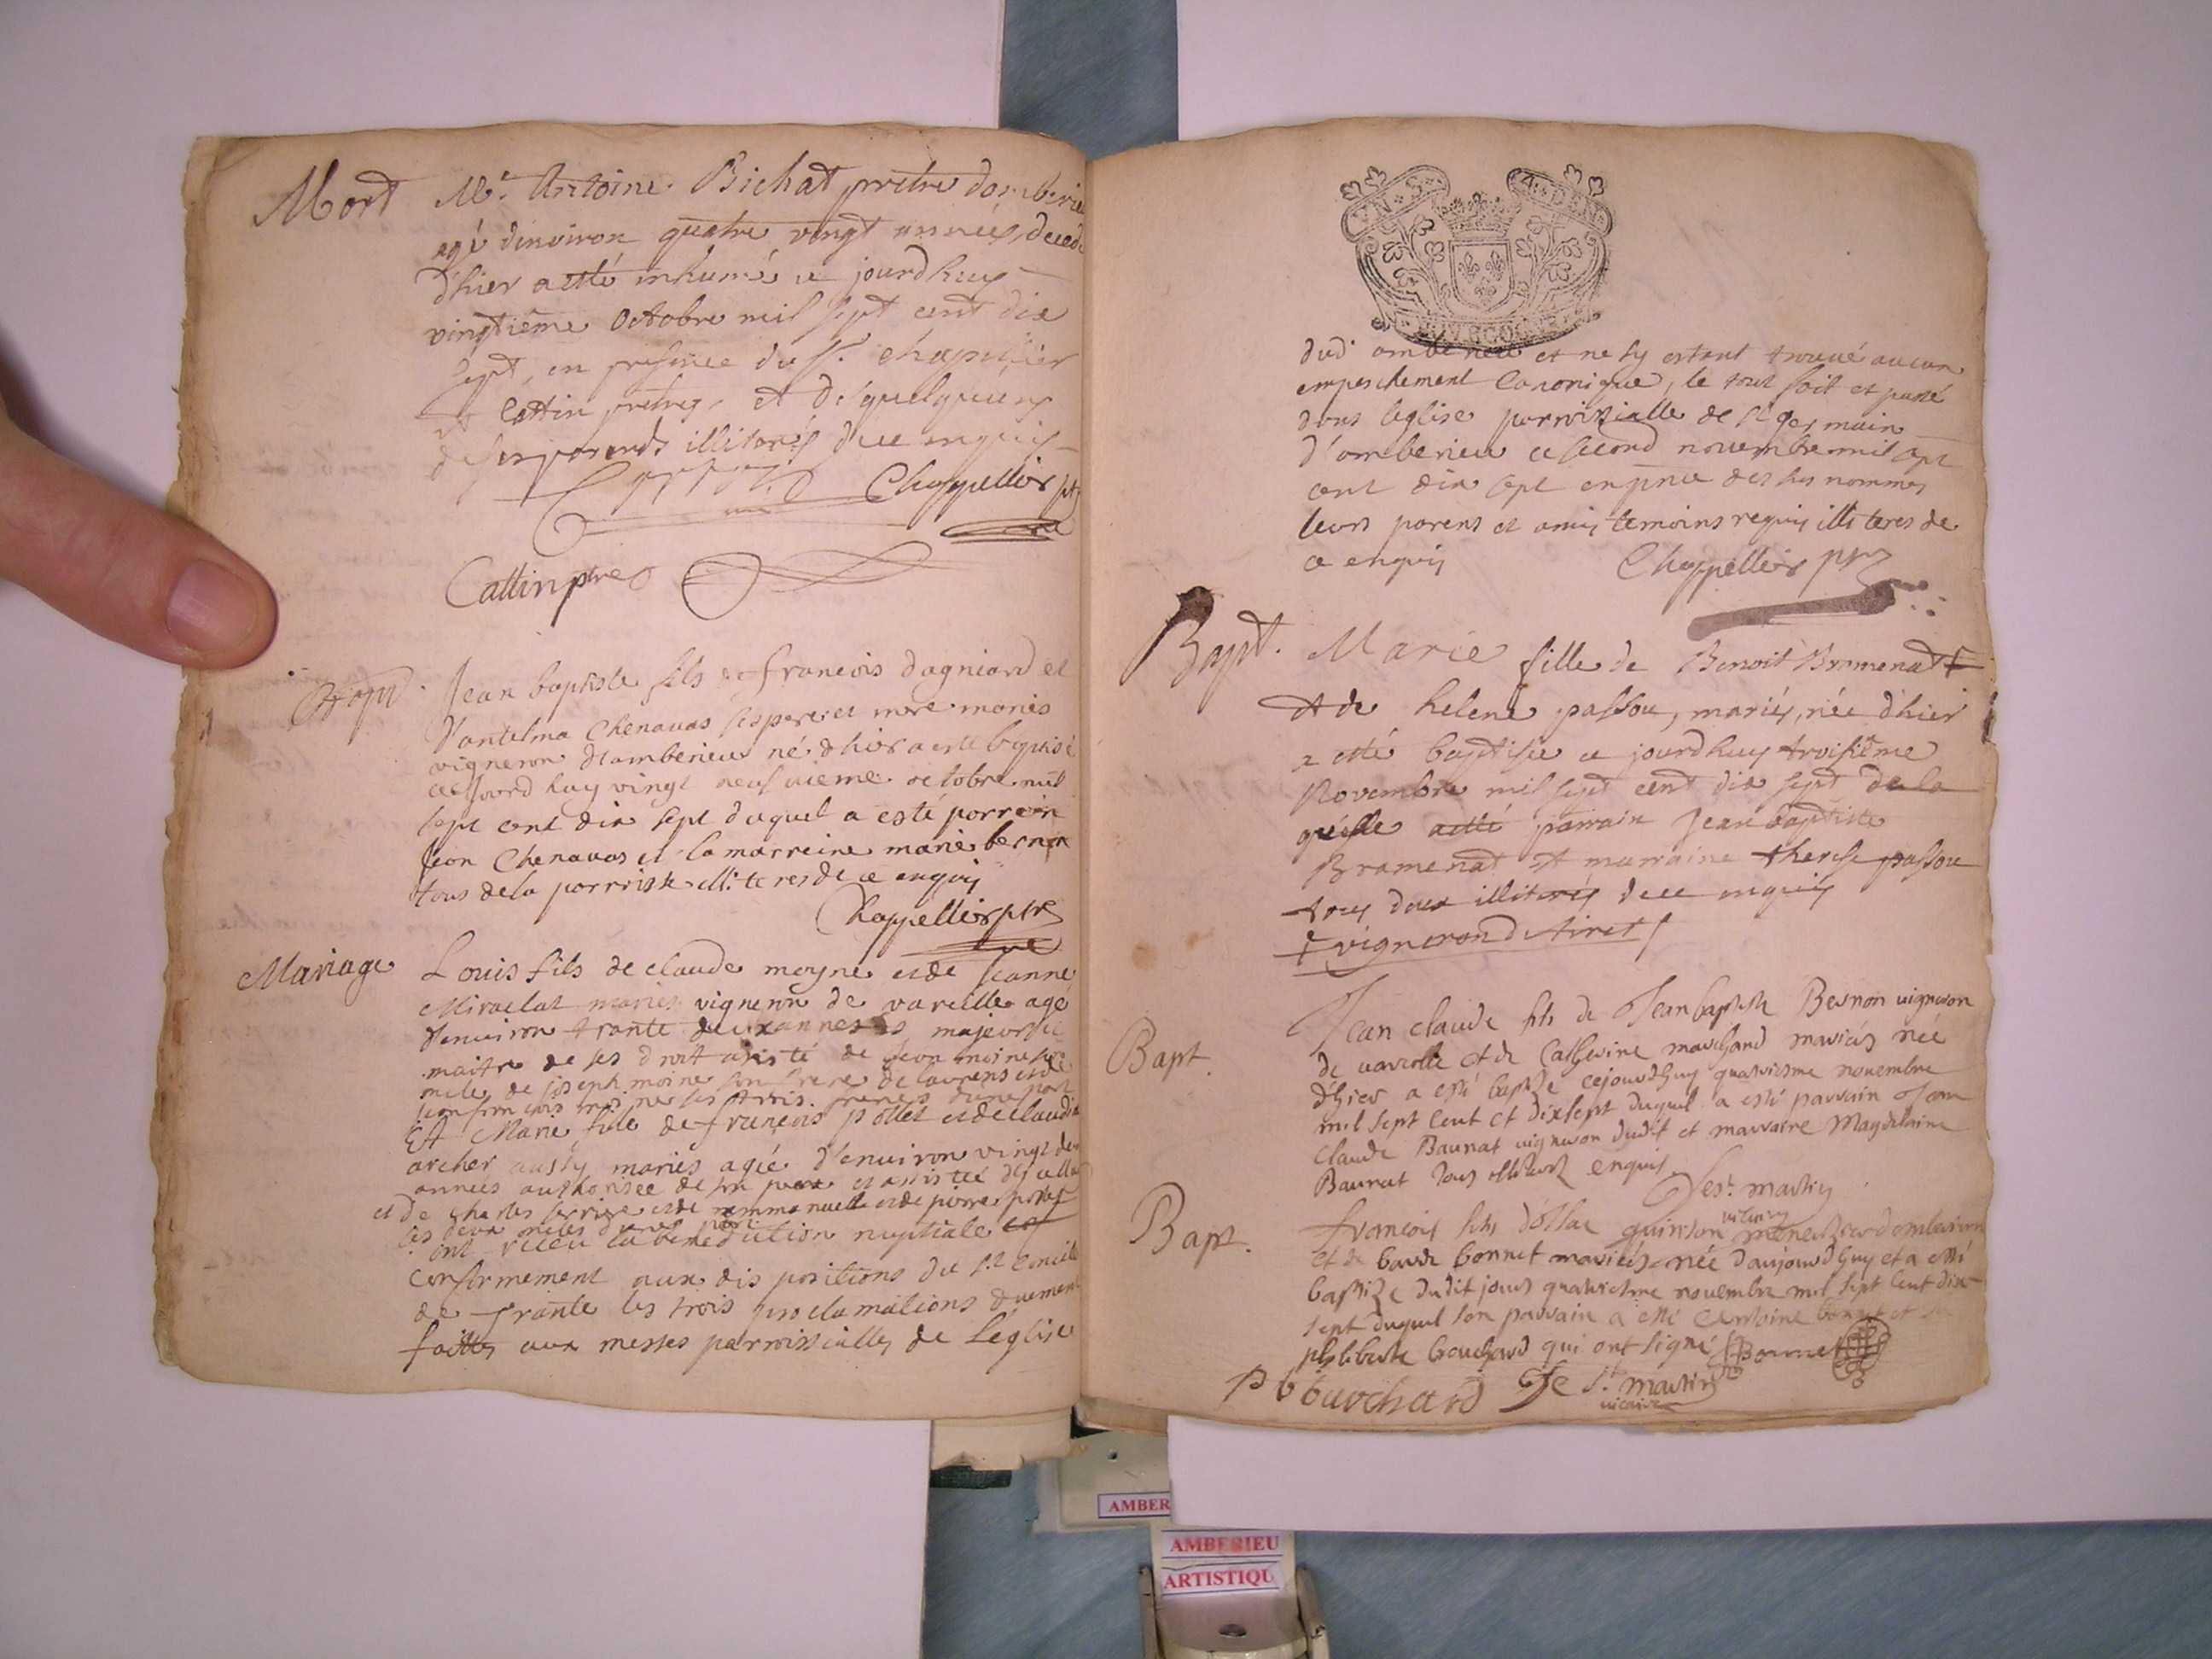 Mort
Mre Antoine Bichat pretre d'amberieu
agé d'environ quatre vingt années, decedé
d'hier a etté inhumé ce jourd'huy
vingtiême octobre mil sept cent dix
sept, en presence de Sr. chapellier
et Cattin pretres, et de quelqueuns
de ses parends illiterés de ce enquis
Chappellier ptre
Cattin ptre
Bapt.
Jean baptiste fils de francois dagniard et
d'antelma Chenavas ses pere et mere mariés
vigneron d'amberieu né d'hier a esté baptisé
ce jourd huy vingt neufvieme octobre mil
sept cent dix sept duquel a esté parrain
Jean Chenavas et la marreine marie bernon
tous de la parroisse illiteres de ce enquis
Chappellier ptre
Mariage
Louis fils de claude moyne et de Jeanne
Miraclat mariés vigneron de vareille agé
d'environ trante deux annees majeur
maitre de ses droit asisté de Jean moine
de joseph moine son frere de laurens et de
jean francois moine ses trois freres d'une part
Et Marie fille de francois pollet et de claudia
archer aussy mariés agée d'environ vingt deux
années authorisée de son pere et assistée de
et de charles serriere et de emmanuelle et de pierre pollet
ont receu la benediction nuptiale
conformement aux dis positions du St. Concile
de Trante les trois proclamations duement
faittes aux messes parroissialles de L'eglise
dud' amberieu et ne sy estant trouvé aucun
empeschement Canonique, le tout fait et passé
dans leglise parroissialle de st germain
d'amberieu ce second novembre mil sept
cent dix sept en pnce des sus nommes
leurs parens et amis temoins requis illiteres de
ce enquis
Chappellier ptre
Bapt.
Marie fille de Benoit Bramenat +
et de helene passou, mariés, née d'hier
a etté baptisée ce jourd huy troisiême
Novembre mil sept cent dix sept de la
quelle a etté parrain Jean baptiste
Bramenat et marraine therese passou
tous deux illiterés de ce enquis
+ vigneron de tiret
Bapt.
Jean claude fils de Jean baptiste Bernon vigneron
de vareille et de Catherine marchand mariés née
d'hier a esté baptisé cejourdhuy quatriesme novembre
mil sept cent et dix sept duquel a esté parrain Jean
claude Baunat vigneron dudit et marraine Magdelaine
Baunat tous illiterez enquis
De st. martin
vicaire
Bapt.
francois fils d'oslas guinson menestrier d'amberieu
et de barde bonnet mariés née d'aujourdhuy et a esté
baptize dudit jour quatriesme novembre mil sept cent dix
sept duquel son parrain a esté Antoine bonnet et
philiberte bouchard qui ont signé
Bonnet
P bbouchard
De St. martin
vicaire
AMBER
AMBERIEU
ARTISTIQU